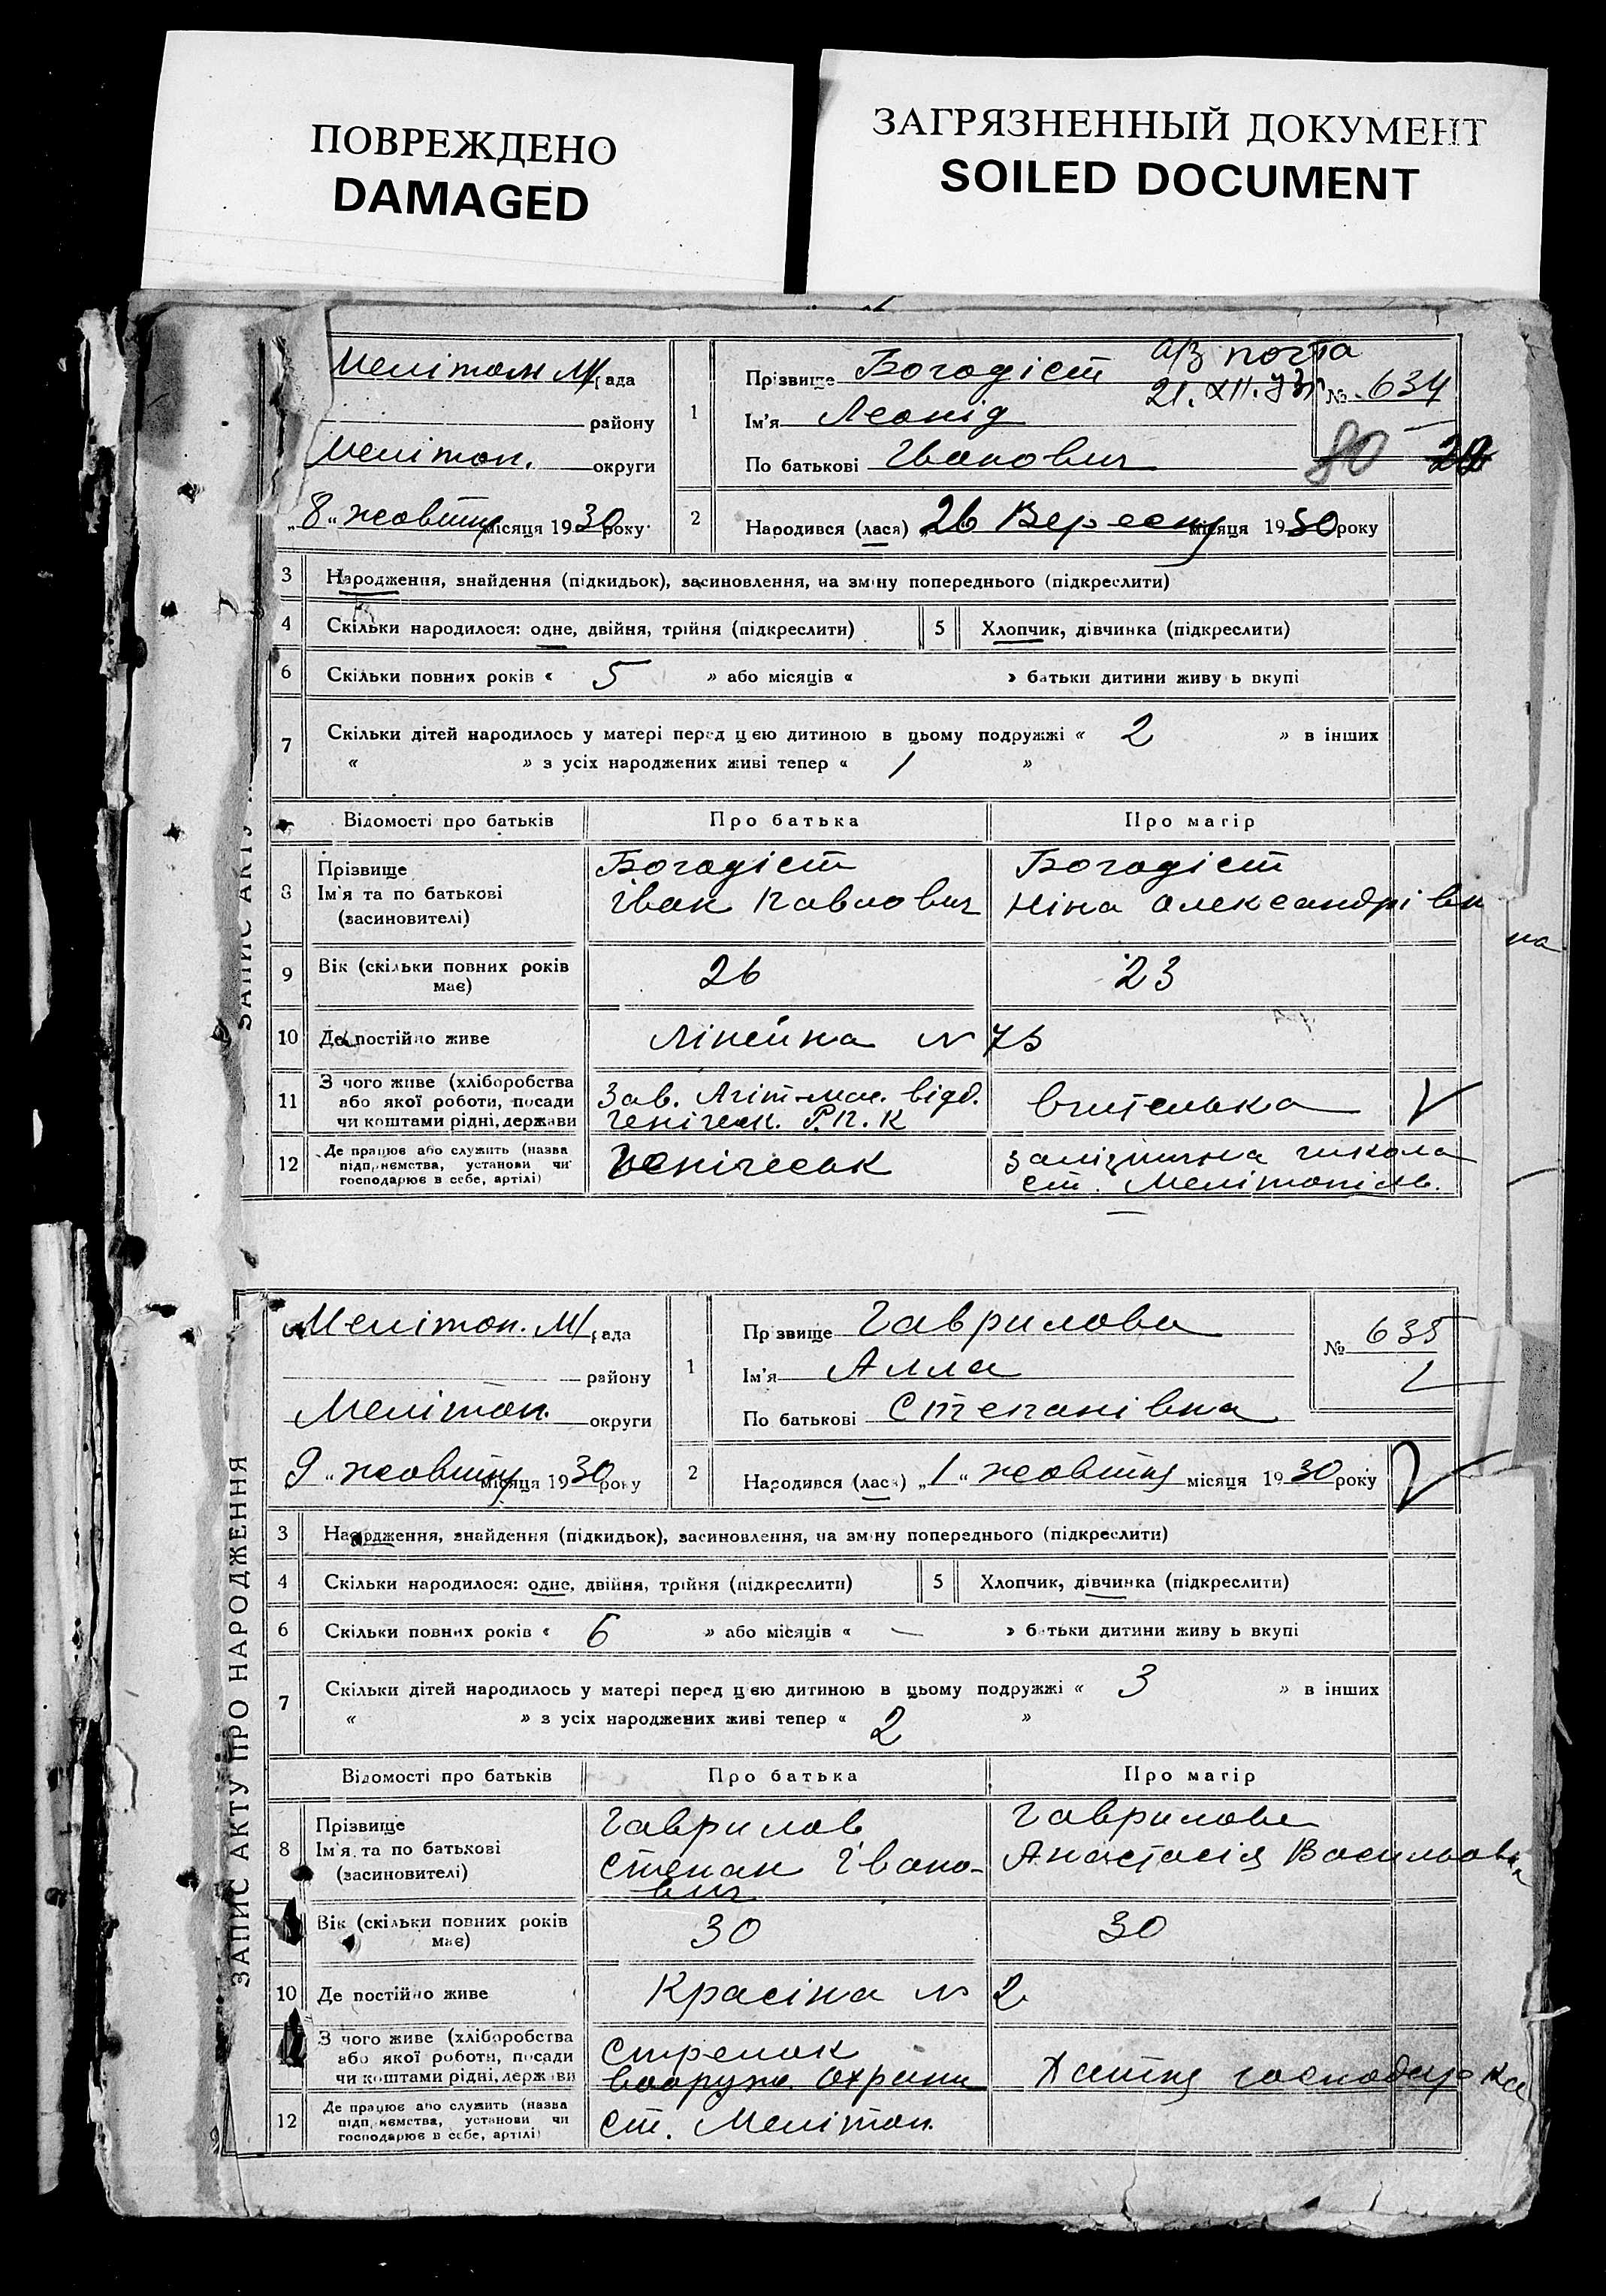 ПОВРЕЖДЕНО
DAMAGED
ЗАГРЯЗНЕННЫЙ ДОКУМЕНТ
SOILED DOCUMENT
Мелітоп М/рада
району
Меліт оп. округи
„8“ жовтня місяця 1930 року
1
Прізвище Богодіст
а/з почта
21. XII. 73г
№ 634
Ім'я Леонід
По батькові Іванович
80
2 Народився (лася) „26 Вересня місяця 1930 року
3 Народження, знайдення (підкидьок), засиновлення, на зміну попереднього (підкреслити)
4 Скільки народилося: одне, двійня, трійня (підкреслити) 5 Хлопчик, дівчинка (підкреслити)
6 Скільки повних років « 5 » або місяців « » батьки дитини живуть вкупі
7 Скільки дітей народилось у матері перед цією дитиною в цьому подружжі « 2 » в інших
« » з усіх народжених живі тепер « 1 »
Відомості про батьків Про батька Про матір
8 Прізвище Ім'я та по батькові (засиновителі)
Богодіст
Іван Павлович
Богодіст
Ніна Олександрівна
9 Вік (скільки повних років має) 26 23
10 Де постійно живе Лінейна № 75
11 З чого живе (хліборобства або якої роботи, посади чи коштами рідні, держави
Зав. Агіт-мас. відд.
Геніческ. Р.П.К
вчителька
12 Де працює або служить (назва підприємства, установи чи господарює в себе, артілі)
Геніческ
залізнична школа
ст. Мелітопіль.
ЗАПИС АКТУ
Меліт оп. М/рада
району
Мелітоп. округи
9 „ жовтня місяця 1930 року
1
Прізвище Гаврилова
№ 635
Ім'я Алла
По батькові Степанівна
2 Народився (лася) „1“ жовтня місяця 1930 року
3 Народження, знайдення (підкидьок), засиновлення, на зміну попереднього (підкреслити)
4 Скільки народилося: одне, двійня, трійня (підкреслити) 5 Хлопчик, дівчинка (підкреслити)
6 Скільки повних років « 6 » або місяців « — » батьки дитини живуть вкупі
7 Скільки дітей народилось у матері перед цією дитиною в цьому подружжі « 3 » в інших
« » з усіх народжених живі тепер « 2 »
Відомості про батьків Про батька Про матір
8 Прізвище Ім'я та по батькові (засиновителі)
Гаврилов
Степан Івано-
вич
Гаврилова
Анастасія Васильовна
Вік (скільки повних років має) 30 30
10 Де постійно живе Красіна № 2
З чого живе (хліборобства або якої роботи, посади чи коштами рідні, держави
Стрелок
вооруж. Охрани
Хатня господарка
12 Де працює або служить (назва підприємства, установи чи господарює в себе, артілі)
ст. Мелітоп.
ЗАПИС АКТУ ПРО НАРОДЖЕННЯ